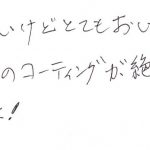 いけどとてもおい
のコーティングが絶
!